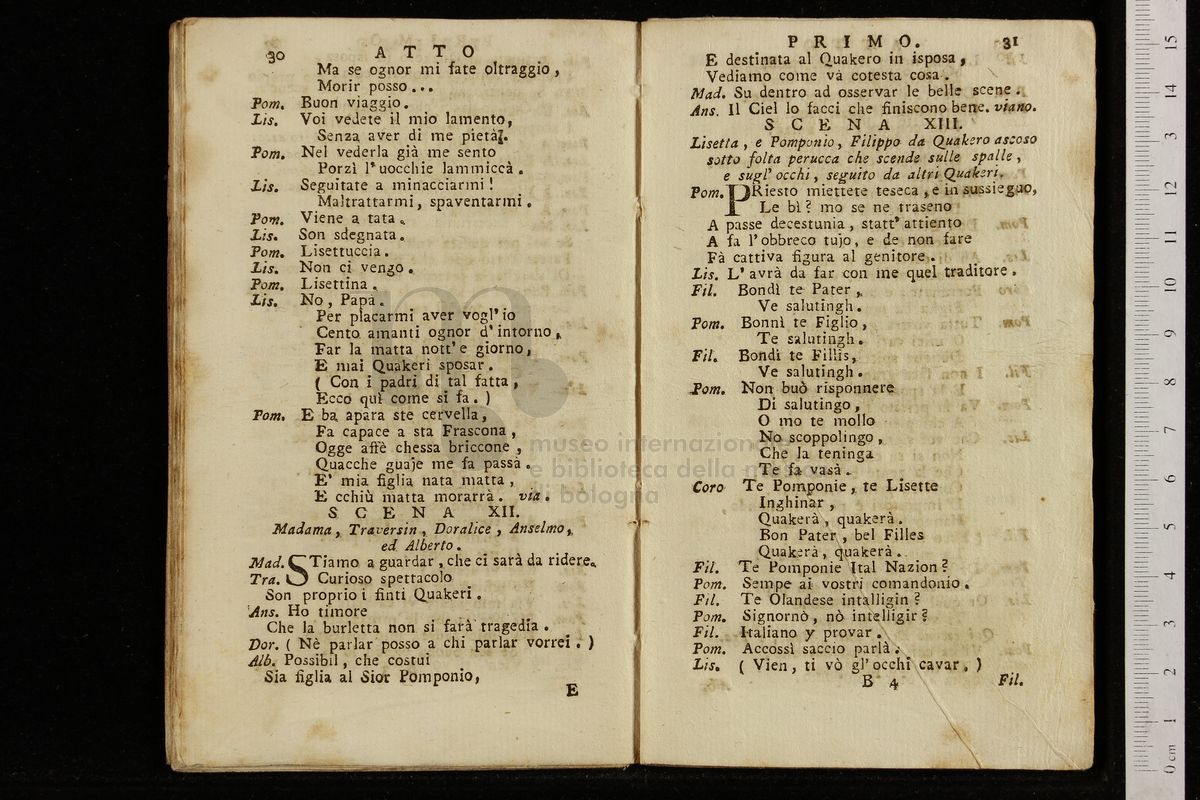 30 ATTO
Ma se ognor mi fate oltraggio,
Morir posso...
Pom. Buon viaggio.
Lis. Voi vedete il mio lamento,
Senza aver di me pietà.
Pom. Nel vederla già me sento
Porzì l'uocchie lammiccà.
Lis. Seguitate a minacciarmi!
Maltrattarmi, spaventarmi.
Pom. Viene a tata.
Lis. Son sdegnata.
Pom. Lisettuccia.
Lis. Non ci vengo.
Pom. Lisettina.
Lis. No, Papà.
Per placarmi aver vogl'io
Cento amanti ognor d'intorno,
Far la matta nott'e giorno,
E mai Quakeri sposar.
( Con i padri di tal fatta,
Ecco quì come si fa. )
Pom. E ba apara ste cervella,
Fa capace a sta Frascona,
Ogge affè chessa briccone,
Quacche guaje me fa passà.
E' mia figlia nata matta,
E cchiù matta morarrà. via.
SCENA XII.
Madama, Traversin, Doralice, Anselmo,
ed Alberto.
Mad. STiamo a guardar, che ci sarà da ridere.
Tra. Curioso spettacolo
Son proprio i finti Quakeri.
Ans. Ho timore
Che la burletta non si farà tragedia.
Dor. ( Nè parlar posso a chi parlar vorrei. )
Alb. Possibil, che costui
Sia figlia al Sior Pomponio,
E
PRIMO. 31
E destinata al Quakero in isposa,
Vediamo come và cotesta cosa.
Mad. Su dentro ad osservar le belle scene.
Ans. Il Ciel lo facci che finiscono bene. viano.
SCENA XIII.
Lisetta, e Pomponio, Filippo da Quakero ascoso
sotto folta perucca che scende sulle spalle,
e sugl'occhi, seguito da altri Quakeri.
Pom. PRiesto miettete teseca, e in sussieguo,
Le bì? mo se ne traseno
A passe decestunia, statt'attiento
A fa l'obbreco tujo, e de non fare
Fà cattiva figura al genitore.
Lis. L'avrà da far con me quel traditore.
Fil. Bondì te Pater,
Ve salutingh.
Pom. Bonnì te Figlio,
Te salutingh.
Fil. Bondì te Fillis,
Ve salutingh.
Pom. Non buò risponnere
Di salutingo,
O mo te mollo
No scoppolingo,
Che la teninga
Te fa vasà.
Coro Te Pomponie, te Lisette
Inghinar,
Quakerà, quakerà.
Bon Pater, bel Filles
Quakerà, quakerà.
Fil. Te Pomponie Ital Nazion?
Pom. Sempe ai vostri comandonio.
Fil. Te Olandese intalligin?
Pom. Signornò, nò intelligir?
Fil. Italiano y provar.
Pom. Accossì saccio parlà.
Lis. ( Vien, ti vò gl'occhi cavar, )
B 4 Fil.
museo internazionale
e biblioteca della musica
di bologna